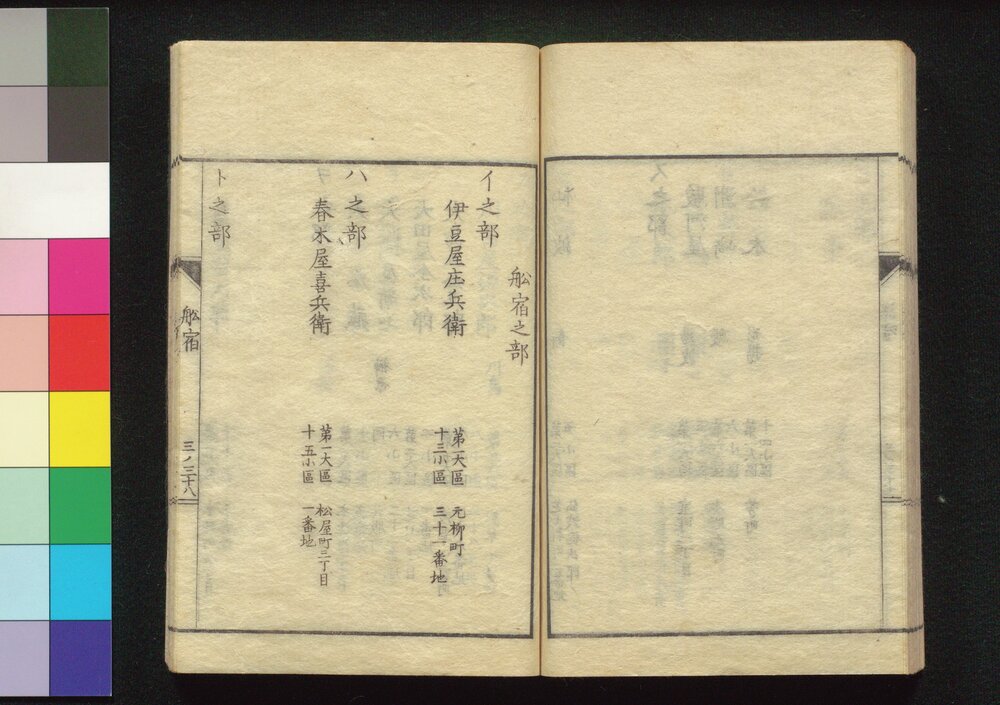 舩宿之部
イ之部
伊豆屋庄兵衛
第一大區 元柳町
十三小區 三十一番地
ハ之部
春木屋喜兵衛
第一大區 松屋町三丁目
十五小區 一番地
ト之部
舩宿
三ノ三十八